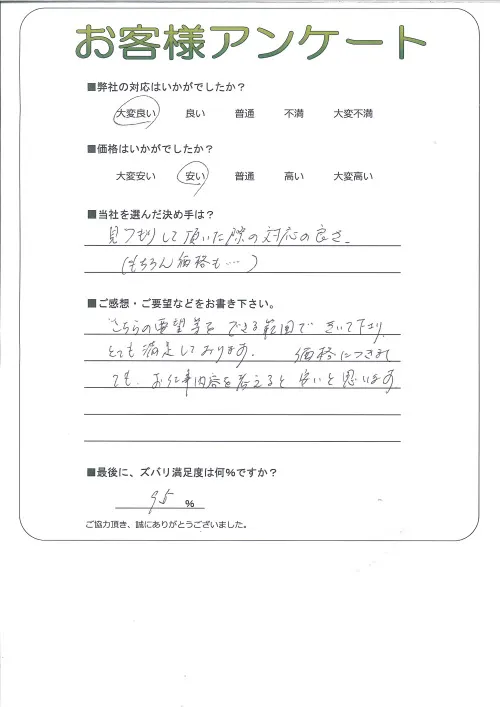 お客様アンケート
■弊社の対応はいかがでしたか？
大変良い 良い 普通 不満 大変不満
■価格はいかがでしたか？
大変安い 安い 普通 高い 大変高い
■当社を選んだ決め手は？
見つもりして頂いた際の対応の良さ、
(もちろん価格も…)
■ご感想・ご要望などをお書き下さい。
こちらの要望等を できる範囲で きいて下さり、
とても 満足しております. 価格につきまし
ても、お仕事内容を考えると 安いと思います
■最後に、ズバリ満足度は何％ですか？
95 %
ご協力頂き、誠にありがとうございました。